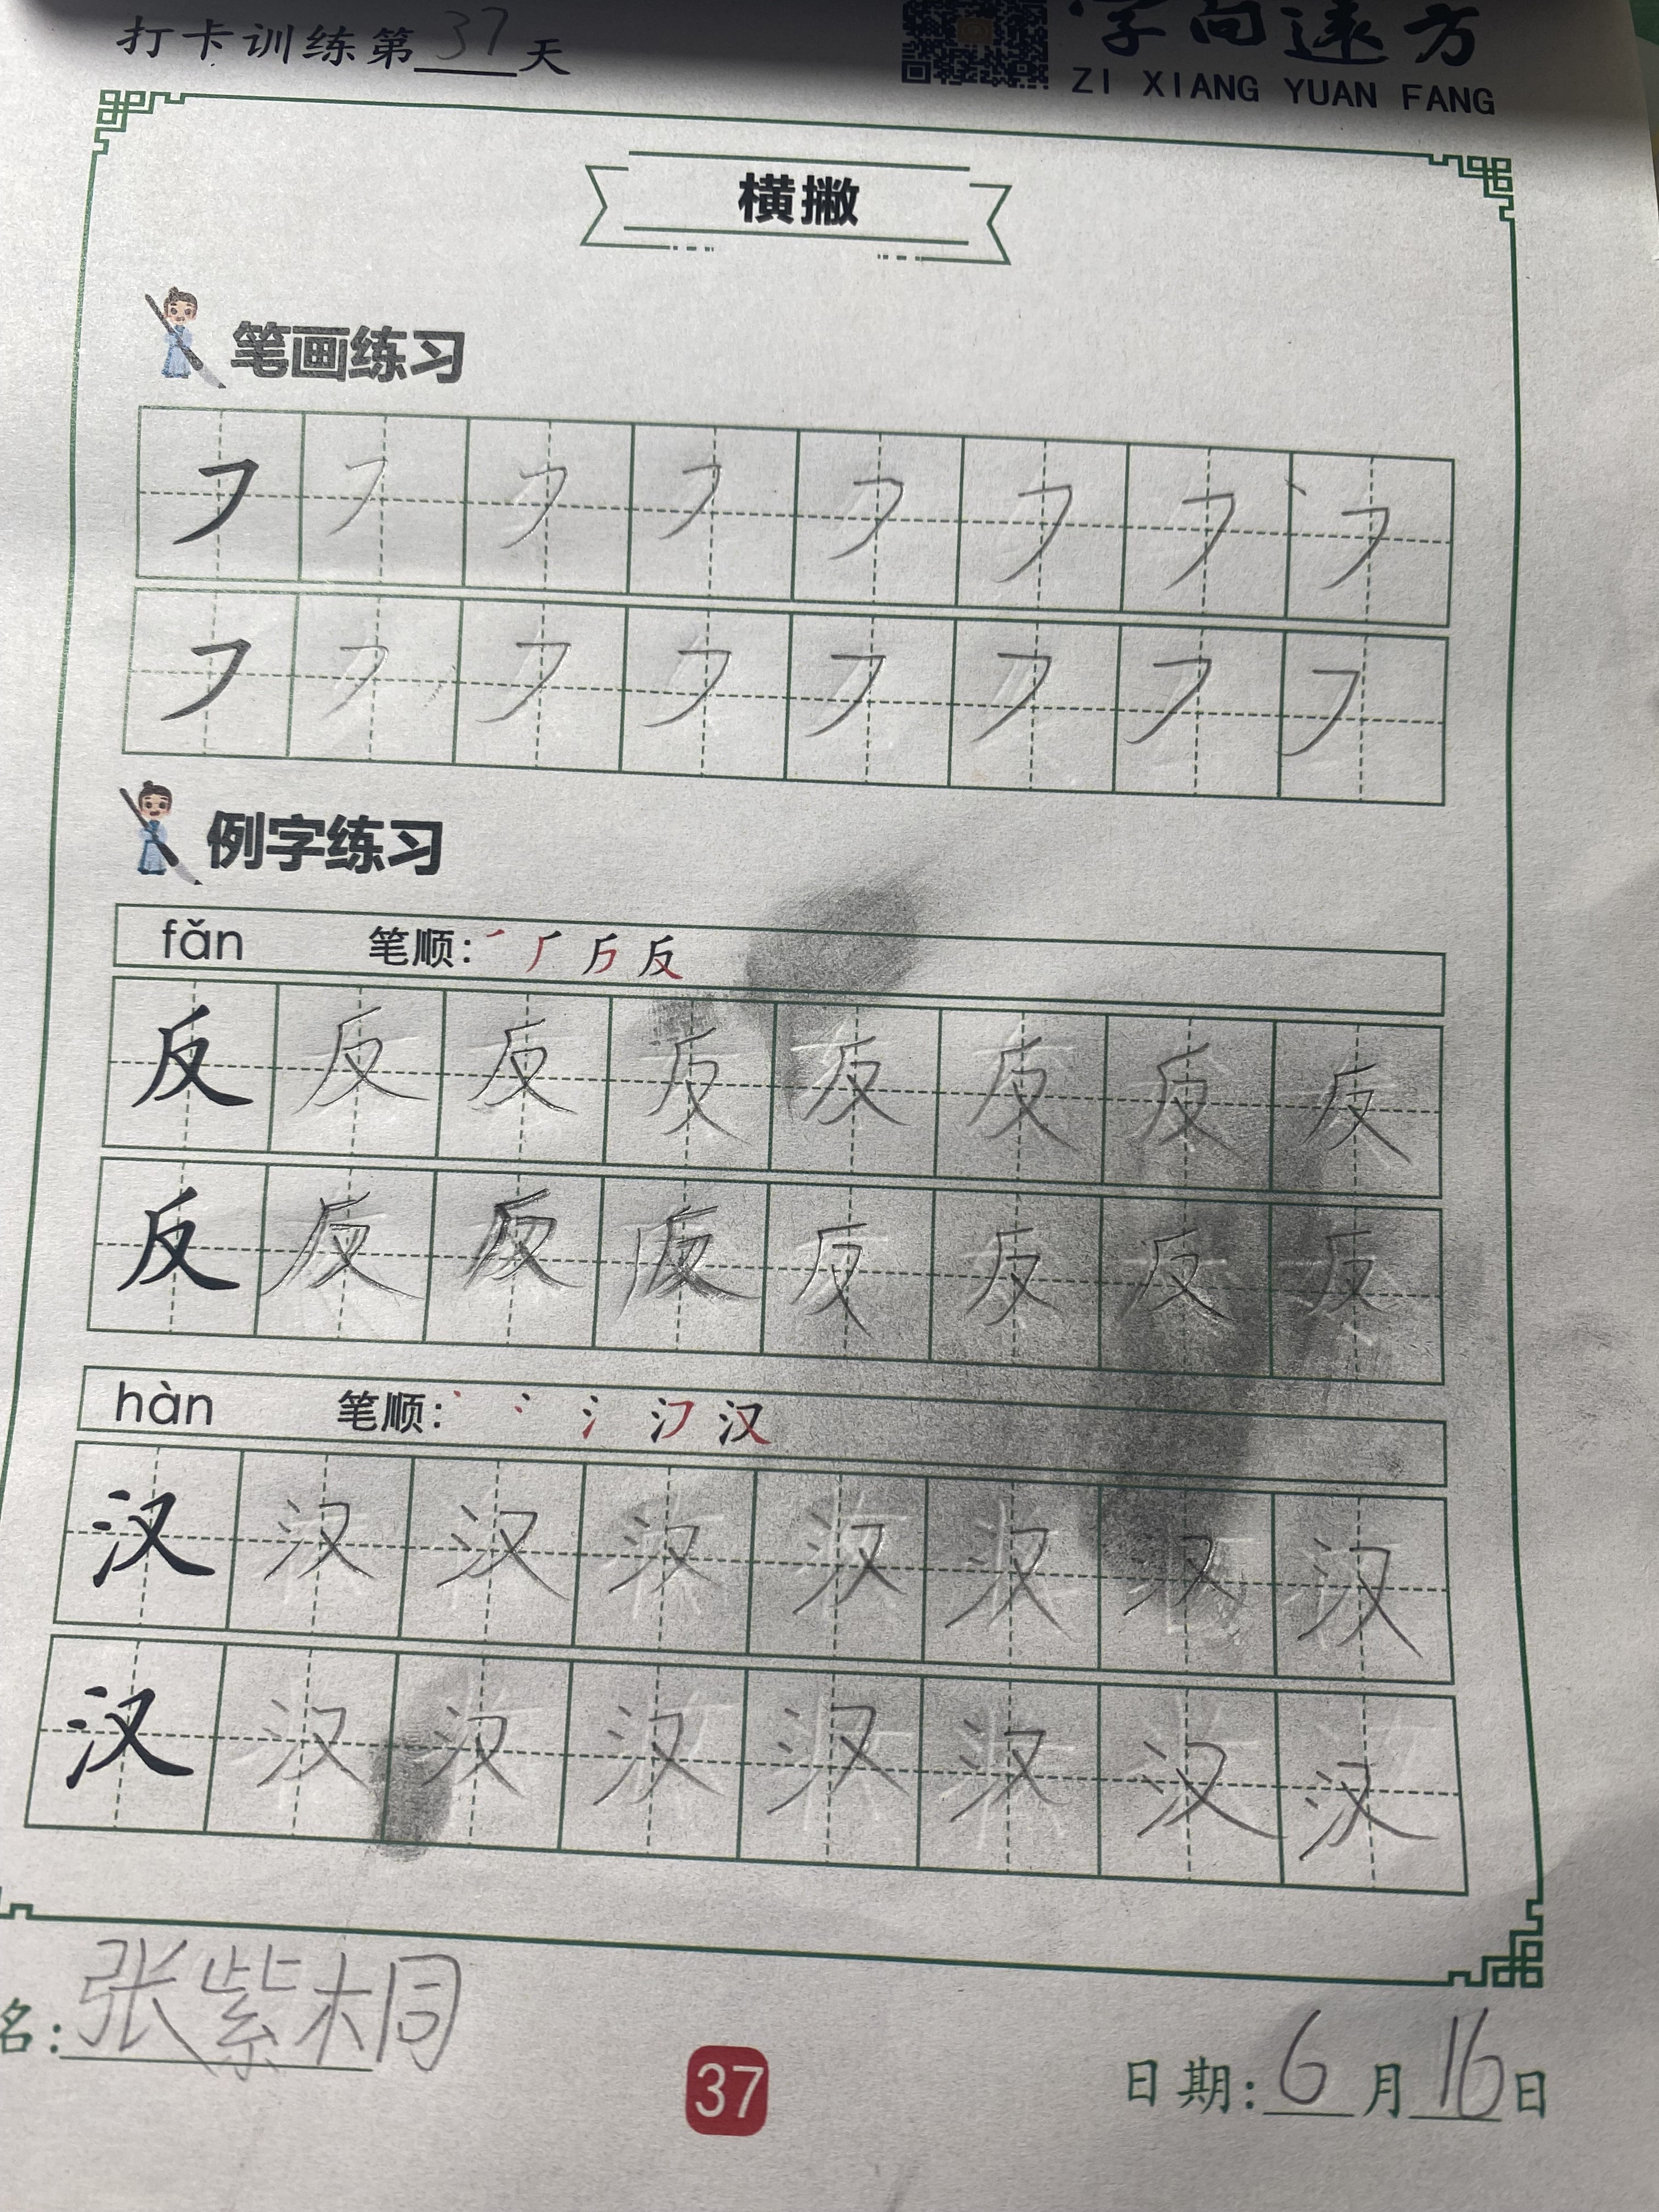 打卡训练第37天
字向远方
ZI XIANG YUAN FANG
横撇
笔画练习
㇇ ㇇ ㇇ ㇇ ㇇ ㇇ ㇇ ㇇
㇇ ㇇ ㇇ ㇇ ㇇ ㇇ ㇇ ㇇
例字练习
fǎn 笔顺: 反
反 反 反 反 反 反 反 反
反 反 反 反 反 反 反 反
hàn 笔顺: 丶 冫 氵 汉
汉 汉 汉 汉 汉 汉 汉 汉
汉 汉 汉 汉 汉 汉 汉 汉
名:张紫桐
37
日期:6月16日